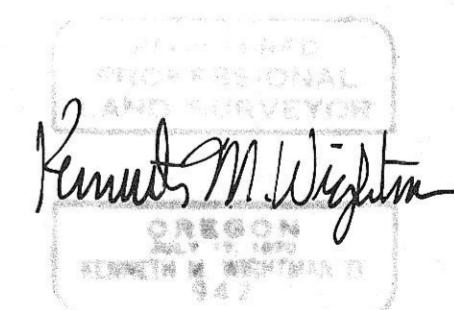 REGISTERED
PROFESSIONAL
LAND SURVEYOR
Kenneth M. Wightman
OREGON
KENNETH M. WIGHTMAN II